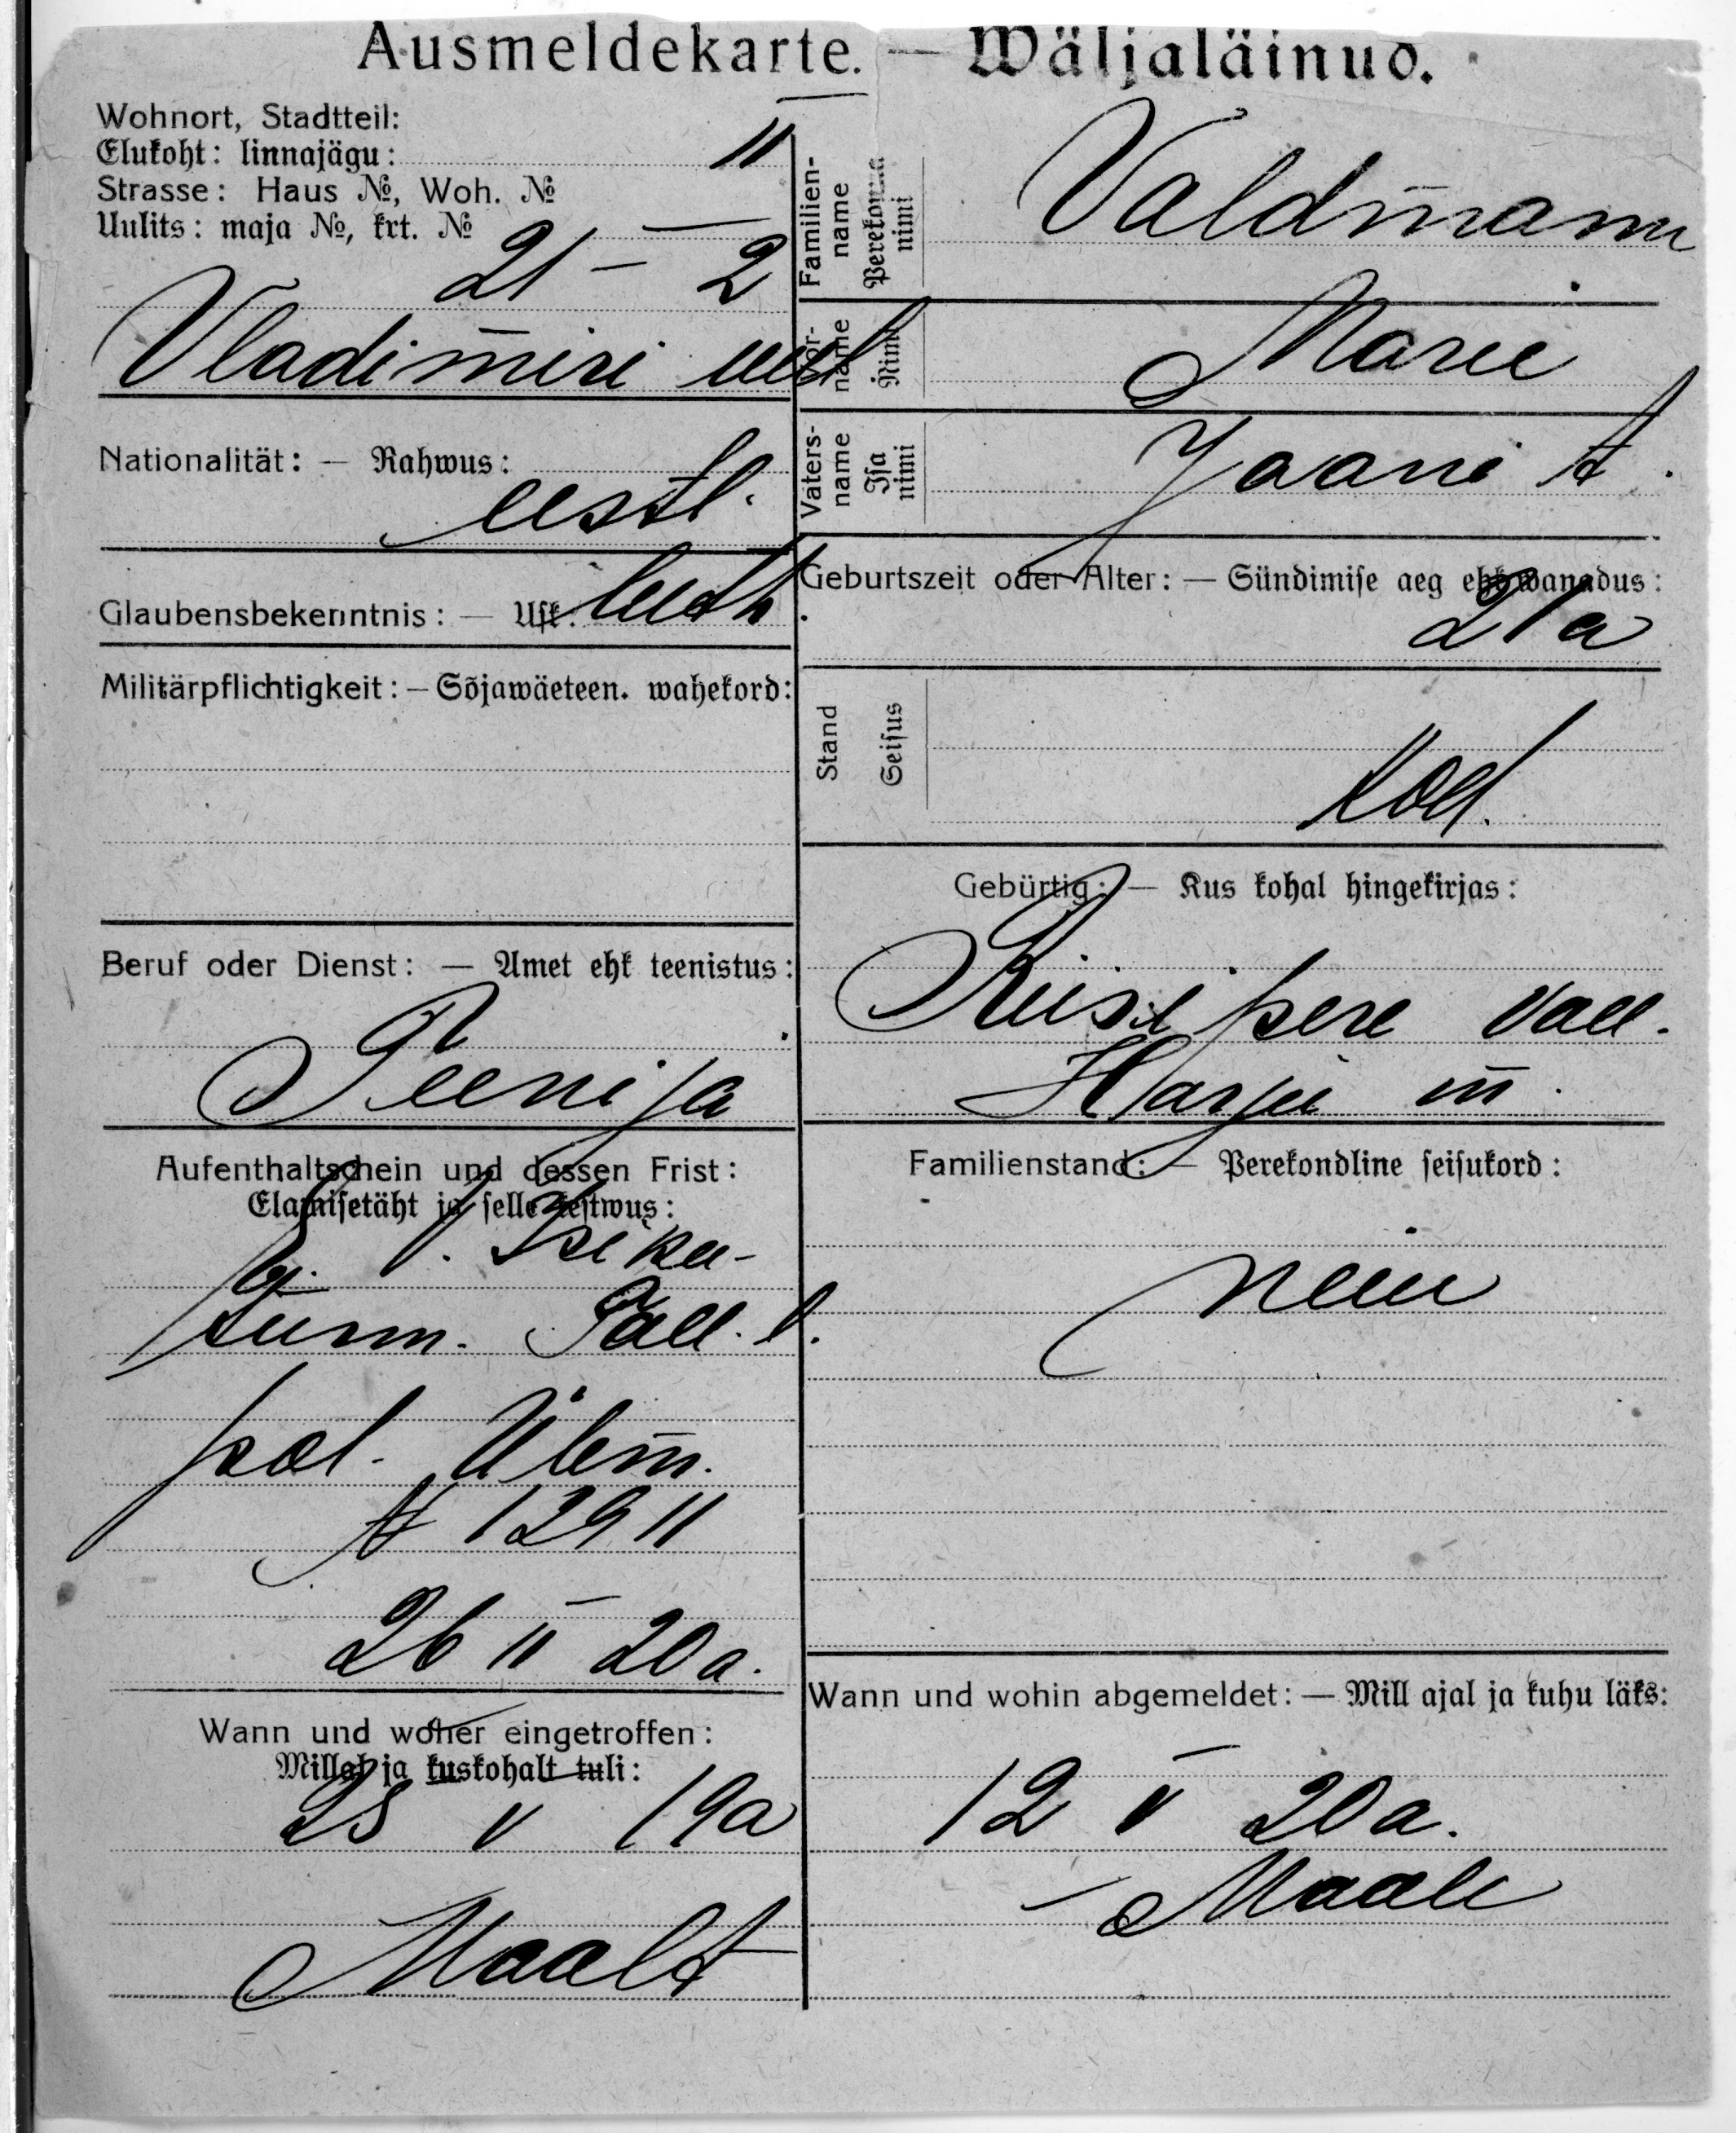 Ausmeldekarte. — Wäljaläinud.
Wohnort, Stadtteil:
Elukoht: linnajägu: II
Strasse: Haus №, Woh. №
Uulits: maja №, krt. №
21 — 2
Vladimiri uul
Nationalität: — Rahwus:
eestl.
Glaubensbekenntnis: — Usk: luth.
Militärpflichtigkeit: — Sõjawäeteen. wahekord:
Beruf oder Dienst: — Amet ehk teenistus:
Teenija
Aufenthaltschein und dessen Frist:
Elamisetäht ja selle kestwus:
Isiku-
tunn. Tall. l.
pol. Ülem.
№ 12911
26 II 20 a.
Wann und woher eingetroffen:
Millal ja kuskohalt tuli:
28 V 19 a
Maalt
Familien-
name
Perekonna
nimi
Valdmann
Vor-
name
Nimi
Marie
Vaters-
name
Isa
nimi
Jaani t.
Geburtszeit oder Alter: — Sündimise aeg ehk wanadus:
21 a
Stand
Seisus
Gebürtig: — Kus kohal hingekirjas:
Riisipere vall.
Harju m.
Familienstand: — Perekondline seisukord:
neiu
Wann und wohin abgemeldet: — Mill ajal ja kuhu läks:
12 V 20 a.
Maale